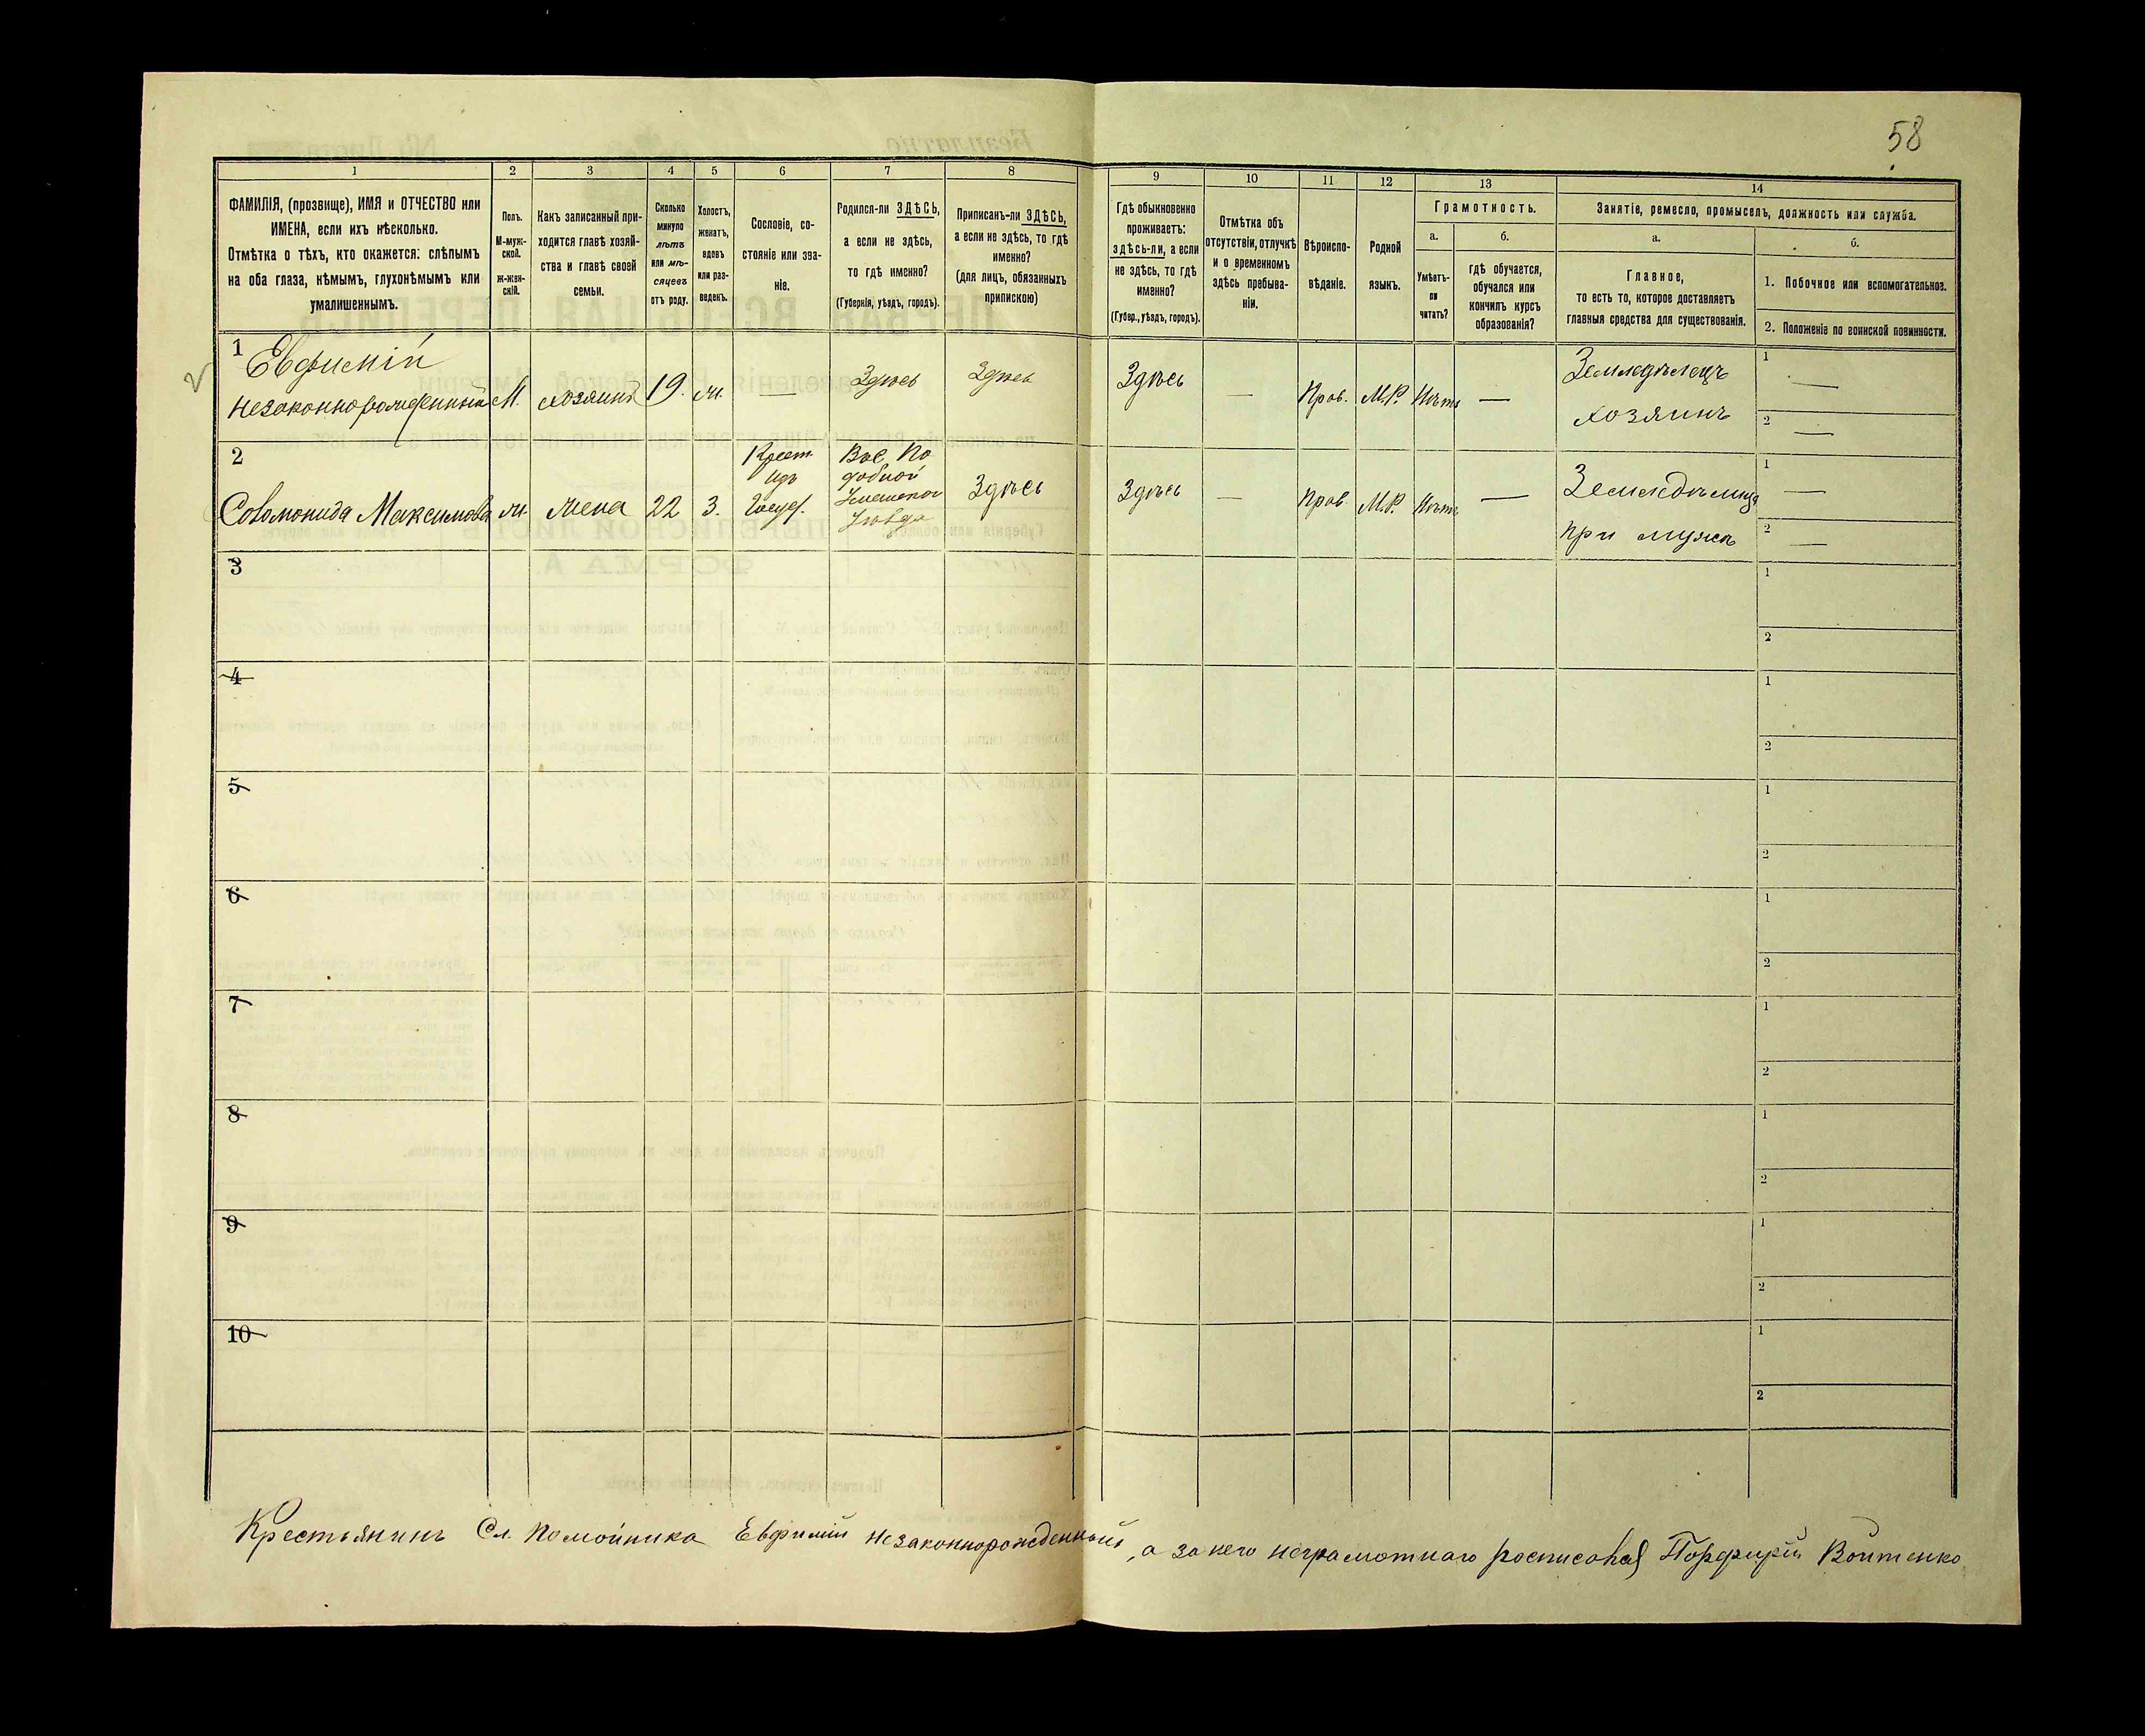 58
1
2
3
4
5
6
7
8
9
10
11
12
13
14
ФАМИЛІЯ, (прозвище), ИМЯ и ОТЧЕСТВО или
ИМЕНА, если ихъ нѣсколько.
Отмѣтка о тѣхъ, кто окажется: слѣпымъ
на оба глаза, нѣмымъ, глухонѣмымъ или
умалишеннымъ.
Полъ.
М-муж-
ской.
ж-жен-
скій.
Какъ записанный при-
ходится главѣ хозяй-
ства и главѣ своей
семьи.
Сколько
минуло
лѣтъ
или мѣ-
сяцевъ
отъ роду.
Холостъ,
женатъ,
вдовъ
или раз-
веденъ.
Сословіе, со-
стояніе или зва-
ніе.
Родился-ли ЗДѢСЬ,
а если не здѣсь,
то гдѣ именно?
(Губернія, уѣздъ, городъ).
Приписанъ-ли ЗДѢСЬ,
а если не здѣсь, то гдѣ
именно?
(для лицъ, обязанныхъ
припискою)
Гдѣ обыкновенно
проживаетъ:
здѣсь-ли, а если
не здѣсь, то гдѣ
именно?
(Губер., уѣздъ, городъ).
Отмѣтка объ
отсутствіи, отлучкѣ
и о временномъ
здѣсь пребыва-
ніи.
Вѣроиспо-
вѣданіе.
Родной
языкъ.
Грамотность.
а.
Умѣетъ-
ли
читать?
б.
гдѣ обучается,
обучался или
кончилъ курсъ
образованія?
Занятіе, ремесло, промыселъ, должность или служба.
а.
Главное,
то есть то, которое доставляетъ
главныя средства для существованія.
б.
1. Побочное или вспомогательное.
2. Положеніе по воинской повинности.
1 Евфимій
незаконнорожденный М. хозяинъ 19. ж. — Здѣсь Здѣсь Здѣсь — Прав. М.Р. Нѣтъ — Земледѣлецъ
хозяинъ
1 —
2 —
2
Соломонида Максимова ж. жена 22 З.
Крест.
Здѣсь Здѣсь — Прав. М.Р. Нѣтъ — Земледѣлица
при мужѣ
1 —
2 —
3
1
2
4
1
2
5
1
2
6
1
2
7
1
2
8
1
2
9
1
2
10
1
2
Крестьянинъ Сл. Помойника Евфимій незаконнорожденный, а за него неграмотнаго росписался Порфирій Войтенко